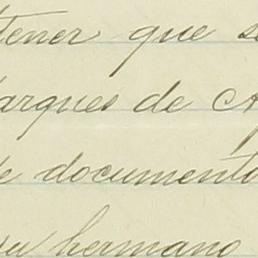 tener que se
arques de A
de documento
su hermano